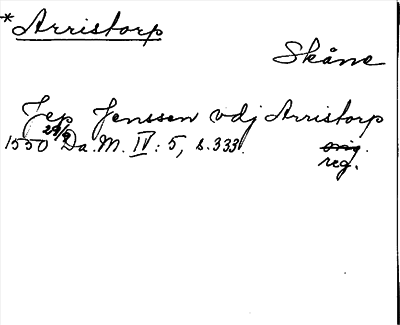 *Arristorp
Skåne
Jep Jenssen vdj Arristorp
1550 29/9 Da. M. IV: 5, s. 333. orig.
reg.